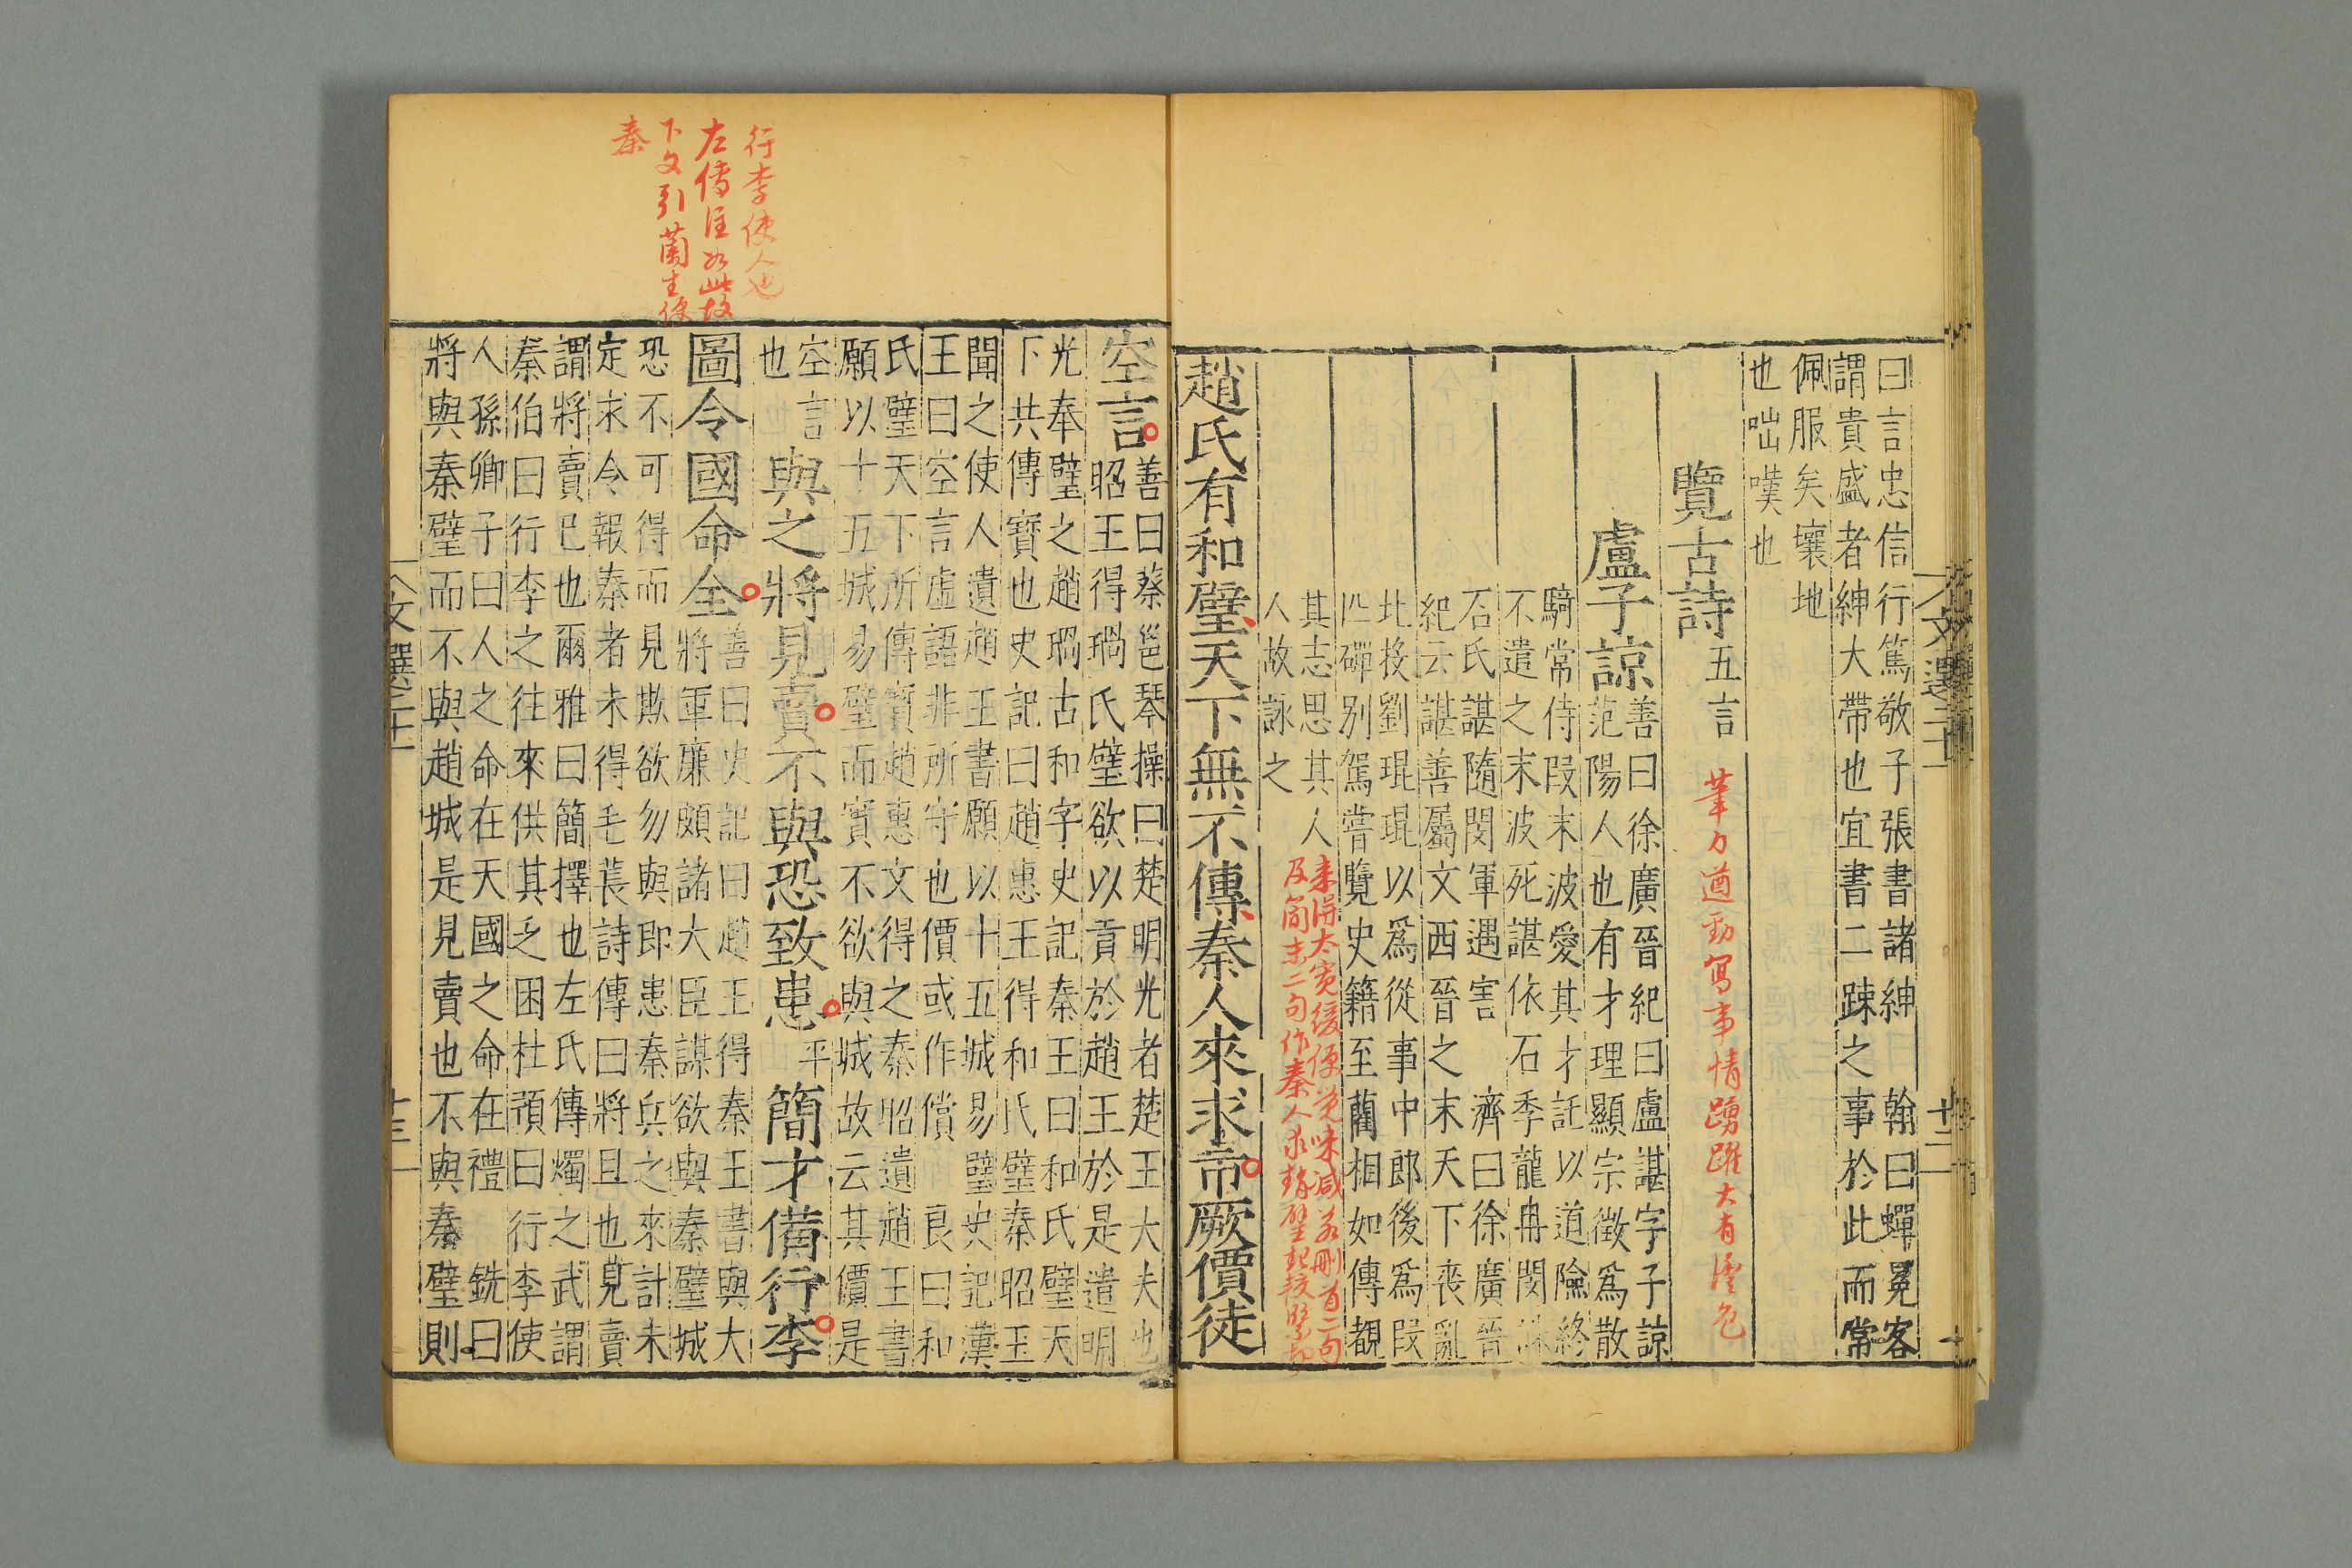 曰言忠信行篤敬子張書諸紳
翰曰蟬冕客
謂貴盛者紳大帶也宜書二踈之事於此而常
佩服矣壤地
也咄嘆也
覽古詩五言
筆力遒勁寫事情踴躍大有
盧子諒
善曰徐廣晉紀曰盧諶字子諒
范陽人也有才理顯宗徵爲散
騎常侍段末波愛其才託以道險終
不遣之末波死諶依石季龍冉閔誅
石氏諶隨閔軍遇害
濟曰徐廣晉
紀云諶善屬文西晉之末天下喪亂
北投劉琨琨以爲從事中郎後爲段
匹磾別駕嘗覽史籍至藺相如傳覩
其志思其人
人故詠之
來得太寬緩便覺味減若刪首二句
及簡末二句作秦人求趙璧起較緊
趙氏有和璧天下無不傳秦人來求市厥價徒
文選二十一
十二
行李使人也
左傳注如此故
下文引藺生使
秦
空言
善曰蔡邕琴操曰楚明光者楚王大夫也
昭王得瑦氏璧欲以貢於趙王於是遣明
光奉璧之趙瑦古和字史記秦王曰和氏璧天
下共傳寶也史記曰趙惠王得和氏璧秦昭王
聞之使人遺趙王書願以十五城易璧史記漢
王曰空言虛語非所守也價或作償
良曰和
氏璧天下所傳寶趙惠文得之秦昭遺趙王書
願以十五城易璧而實不欲與城故云其價是
空言
也
與之將見賣不與恐致患平簡才備行李
圖令國命全
善曰史記曰趙王得秦王書與大
將軍廉頗諸大臣謀欲與秦璧城
恐不可得而見欺欲勿與即患秦兵之來計未
定求令報秦者未得毛萇詩傳曰將且也見賣
謂將賣己也爾雅曰簡擇也左氏傳燭之武謂
秦伯曰行李之往來供其乏困杜預曰行李使
人孫卿子曰人之命在天國之命在禮
銑曰
將與秦璧而不與趙城是見賣也不與秦璧則
文選二十一
十三